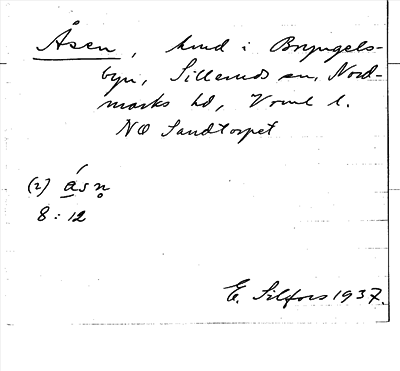 Åsen, hmd i Bryngels-
byn, Sillerud sn, Nord-
marks hd, Vrml l.
NO Sandtorpet
(2) ásn̥
8:12
E. Silfors 1937.